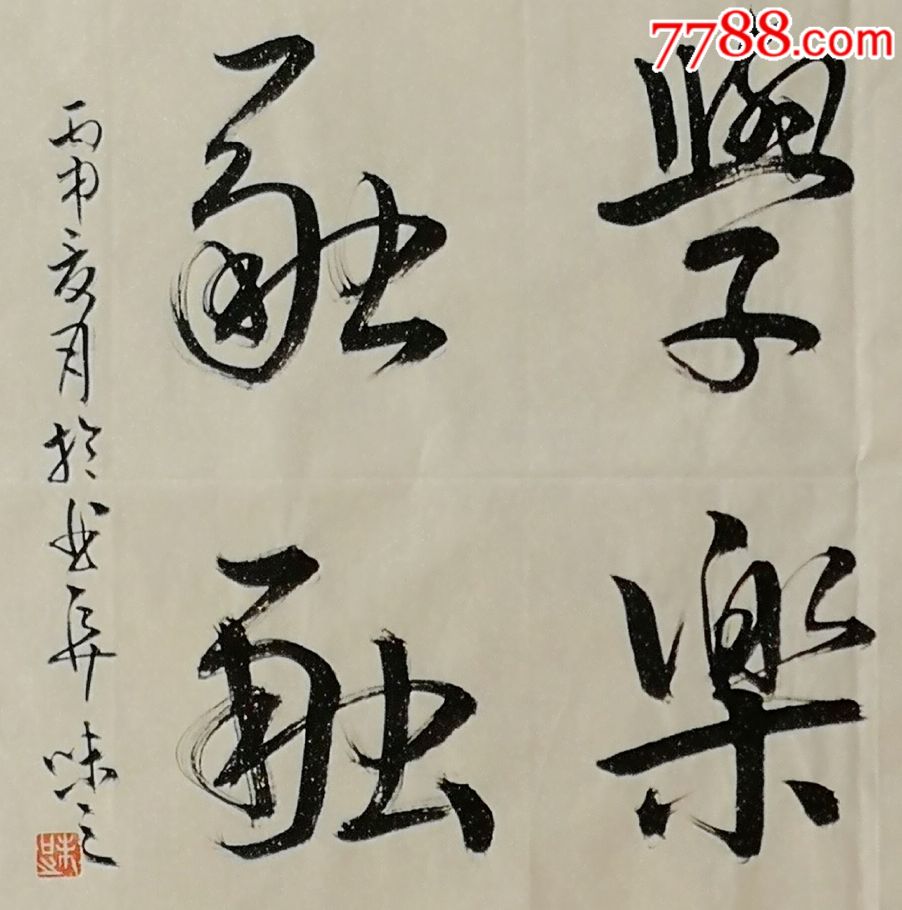 學樂
融融
丙申亥月於
味之
味
7788.com